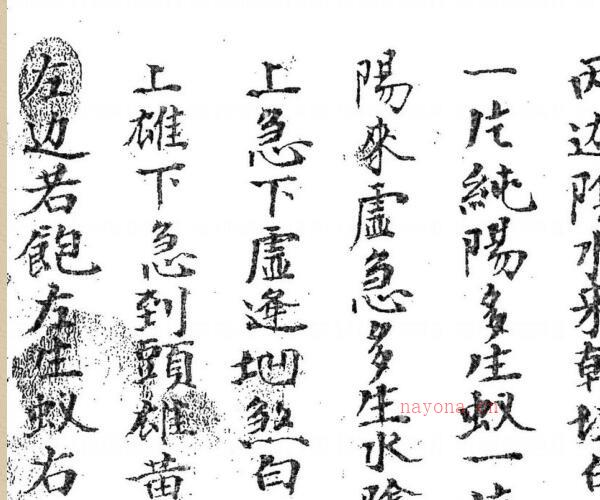 两边陰水來乾坟白
一片純陽多生蚁一
陽來虛急多生水陰
上急下虛逢地煞白
上雄下急到頭雄黄
左边若飽左生蚁右
nayona.cn